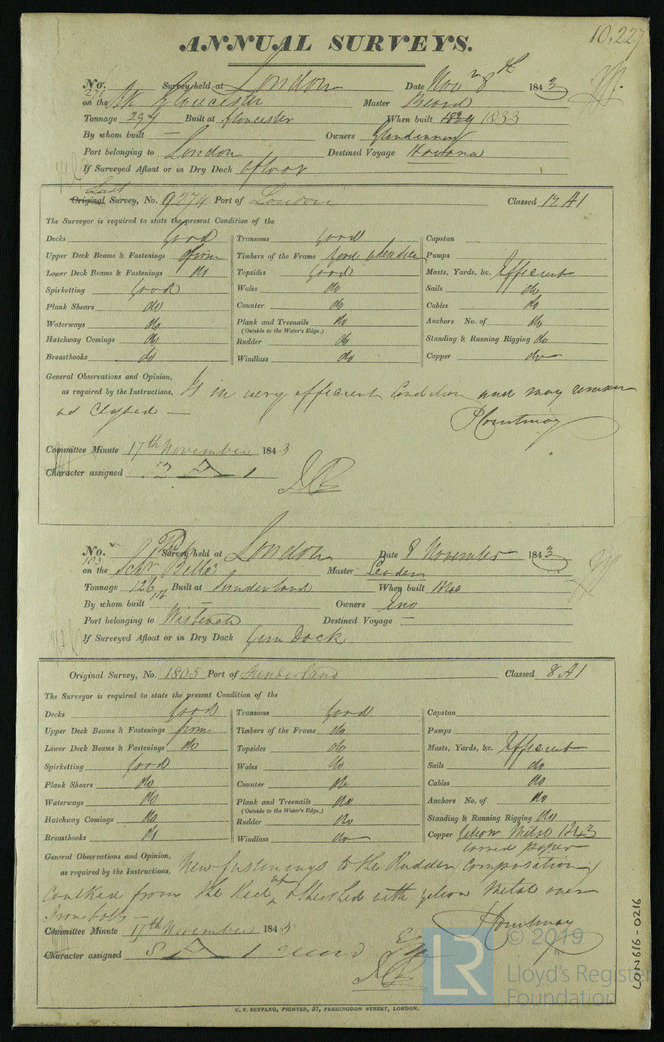 10,227
ANNUAL SURVEYS.
No. Survey held at London Date Nov 8th 1843
on the Bk Gloucester Master Beard
Tonnage 294 Built at Gloucester When built 1833
By whom built — Owners Glendenning
Port belonging to London Destined Voyage Havana
If Surveyed Afloat or in Dry Dock afloat
Last
Original Survey, No. 9274 Port of London Classed 12 A1
The Surveyor is required to state the present Condition of the
Decks Good Transoms Good Capstan
Upper Deck Beams & Fastenings firm Timbers of the Frame Good Pumps
Lower Deck Beams & Fastenings do Topsides Good Masts, Yards, &c. Efficient
Spirketting Good Wales do Sails do
Plank Shears do Counter do Cables do
Waterways do Plank and Treenails do Anchors No. of do
(Outside to the Water's Edge.)
Hatchway Comings do Rudder do Standing & Running Rigging do
Breasthooks do Windlass do Copper do
General Observations and Opinion,
as required by the Instructions. Is in very efficient Condition and may remain
as Classed —
P Courtnay
Committee Minute 17th November 1843
Character assigned 12 A 1
No. 103 Survey held at London Date 8 November 1843
on the Schr Belle Master
Tonnage 126 Built at Sunderland When built 1840
By whom built — Owners Eno
Port belonging to Wisbeach Destined Voyage —
If Surveyed Afloat or in Dry Dock Gun Dock
Original Survey, No. 1805 Port of Sunderland Classed 8 A1
The Surveyor is required to state the present Condition of the
Decks Good Transoms Good Capstan
Upper Deck Beams & Fastenings firm Timbers of the Frame do Pumps
Lower Deck Beams & Fastenings do Topsides do Masts, Yards, &c. Efficient
Spirketting Good Wales do Sails do
Plank Shears do Counter do Cables do
Waterways do Plank and Treenails do Anchors No. of do
(Outside to the Water's Edge.)
Hatchway Comings do Rudder do Standing & Running Rigging do
Breasthooks do Windlass do Copper Yellow Metal 1843
over paper
General Observations and Opinion,
as required by the Instructions. New fastenings to the Rudder (Composition)
Caulked from the Keel up & sheathed with yellow Metal over
Iron bolts —
P Courtnay
Committee Minute 17th November 1843
Character assigned 8 A 1
C. F. SEYFANG, PRINTER, 57, FARRINGDON STREET, LONDON.
LON616-0216
LR © 2019
Lloyd's Register
Foundation